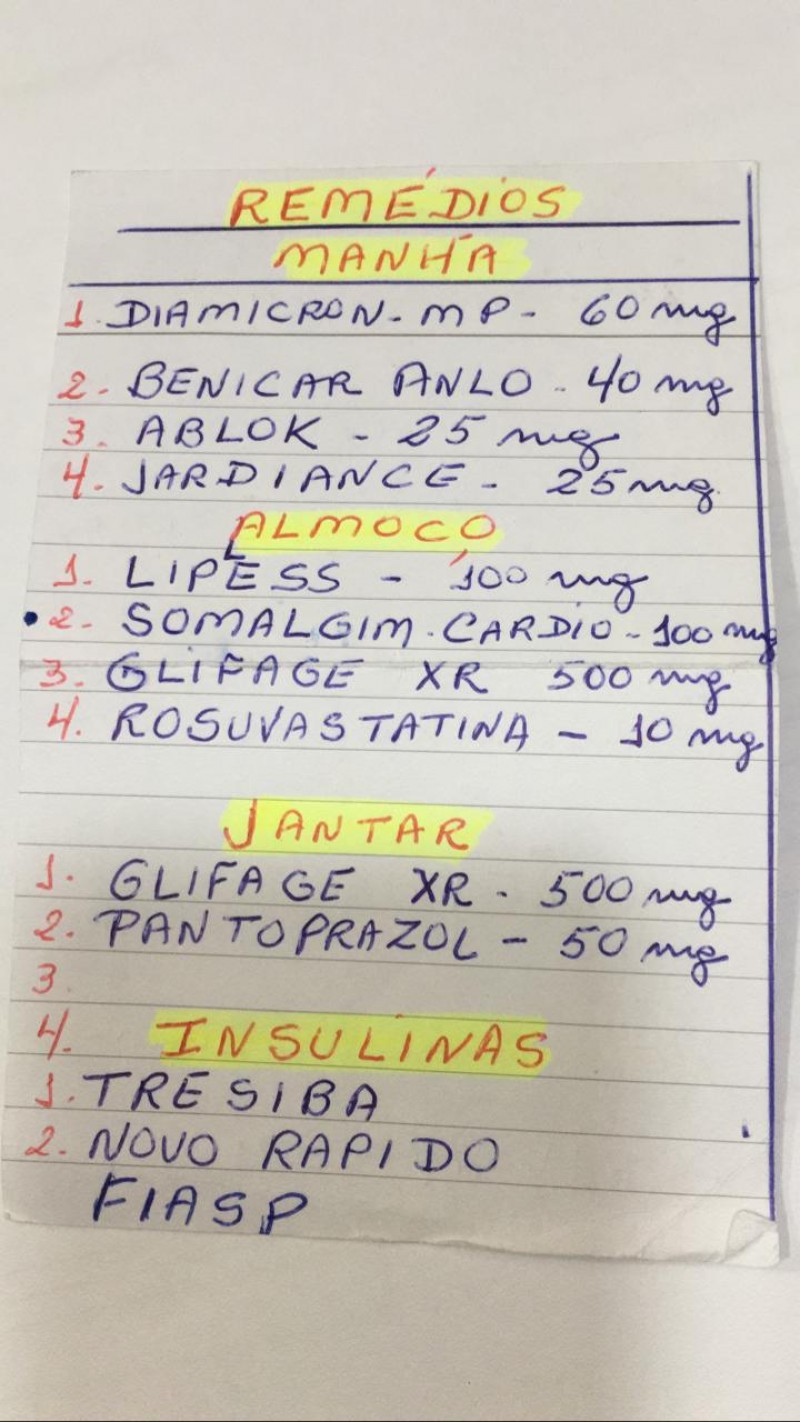 REMÉDIOS
MANHÃ
1. DIAMICRON - MP - 60 mg
2. BENICAR ANLO - 40 mg
3. ABLOK - 25 mg
4. JARDIANCE - 25 mg
ALMOÇO
1. LIPLESS - 100 mg
• 2. SOMALGIM. CARDIO - 100 mg
3. GLIFAGE XR 500 mg
4. ROSUVASTATINA - 10 mg
JANTAR
1. GLIFAGE XR - 500 mg
2. PANTOPRAZOL - 50 mg
3.
4. INSULINAS
1. TRESIBA
2. NOVO RAPIDO
FIASP